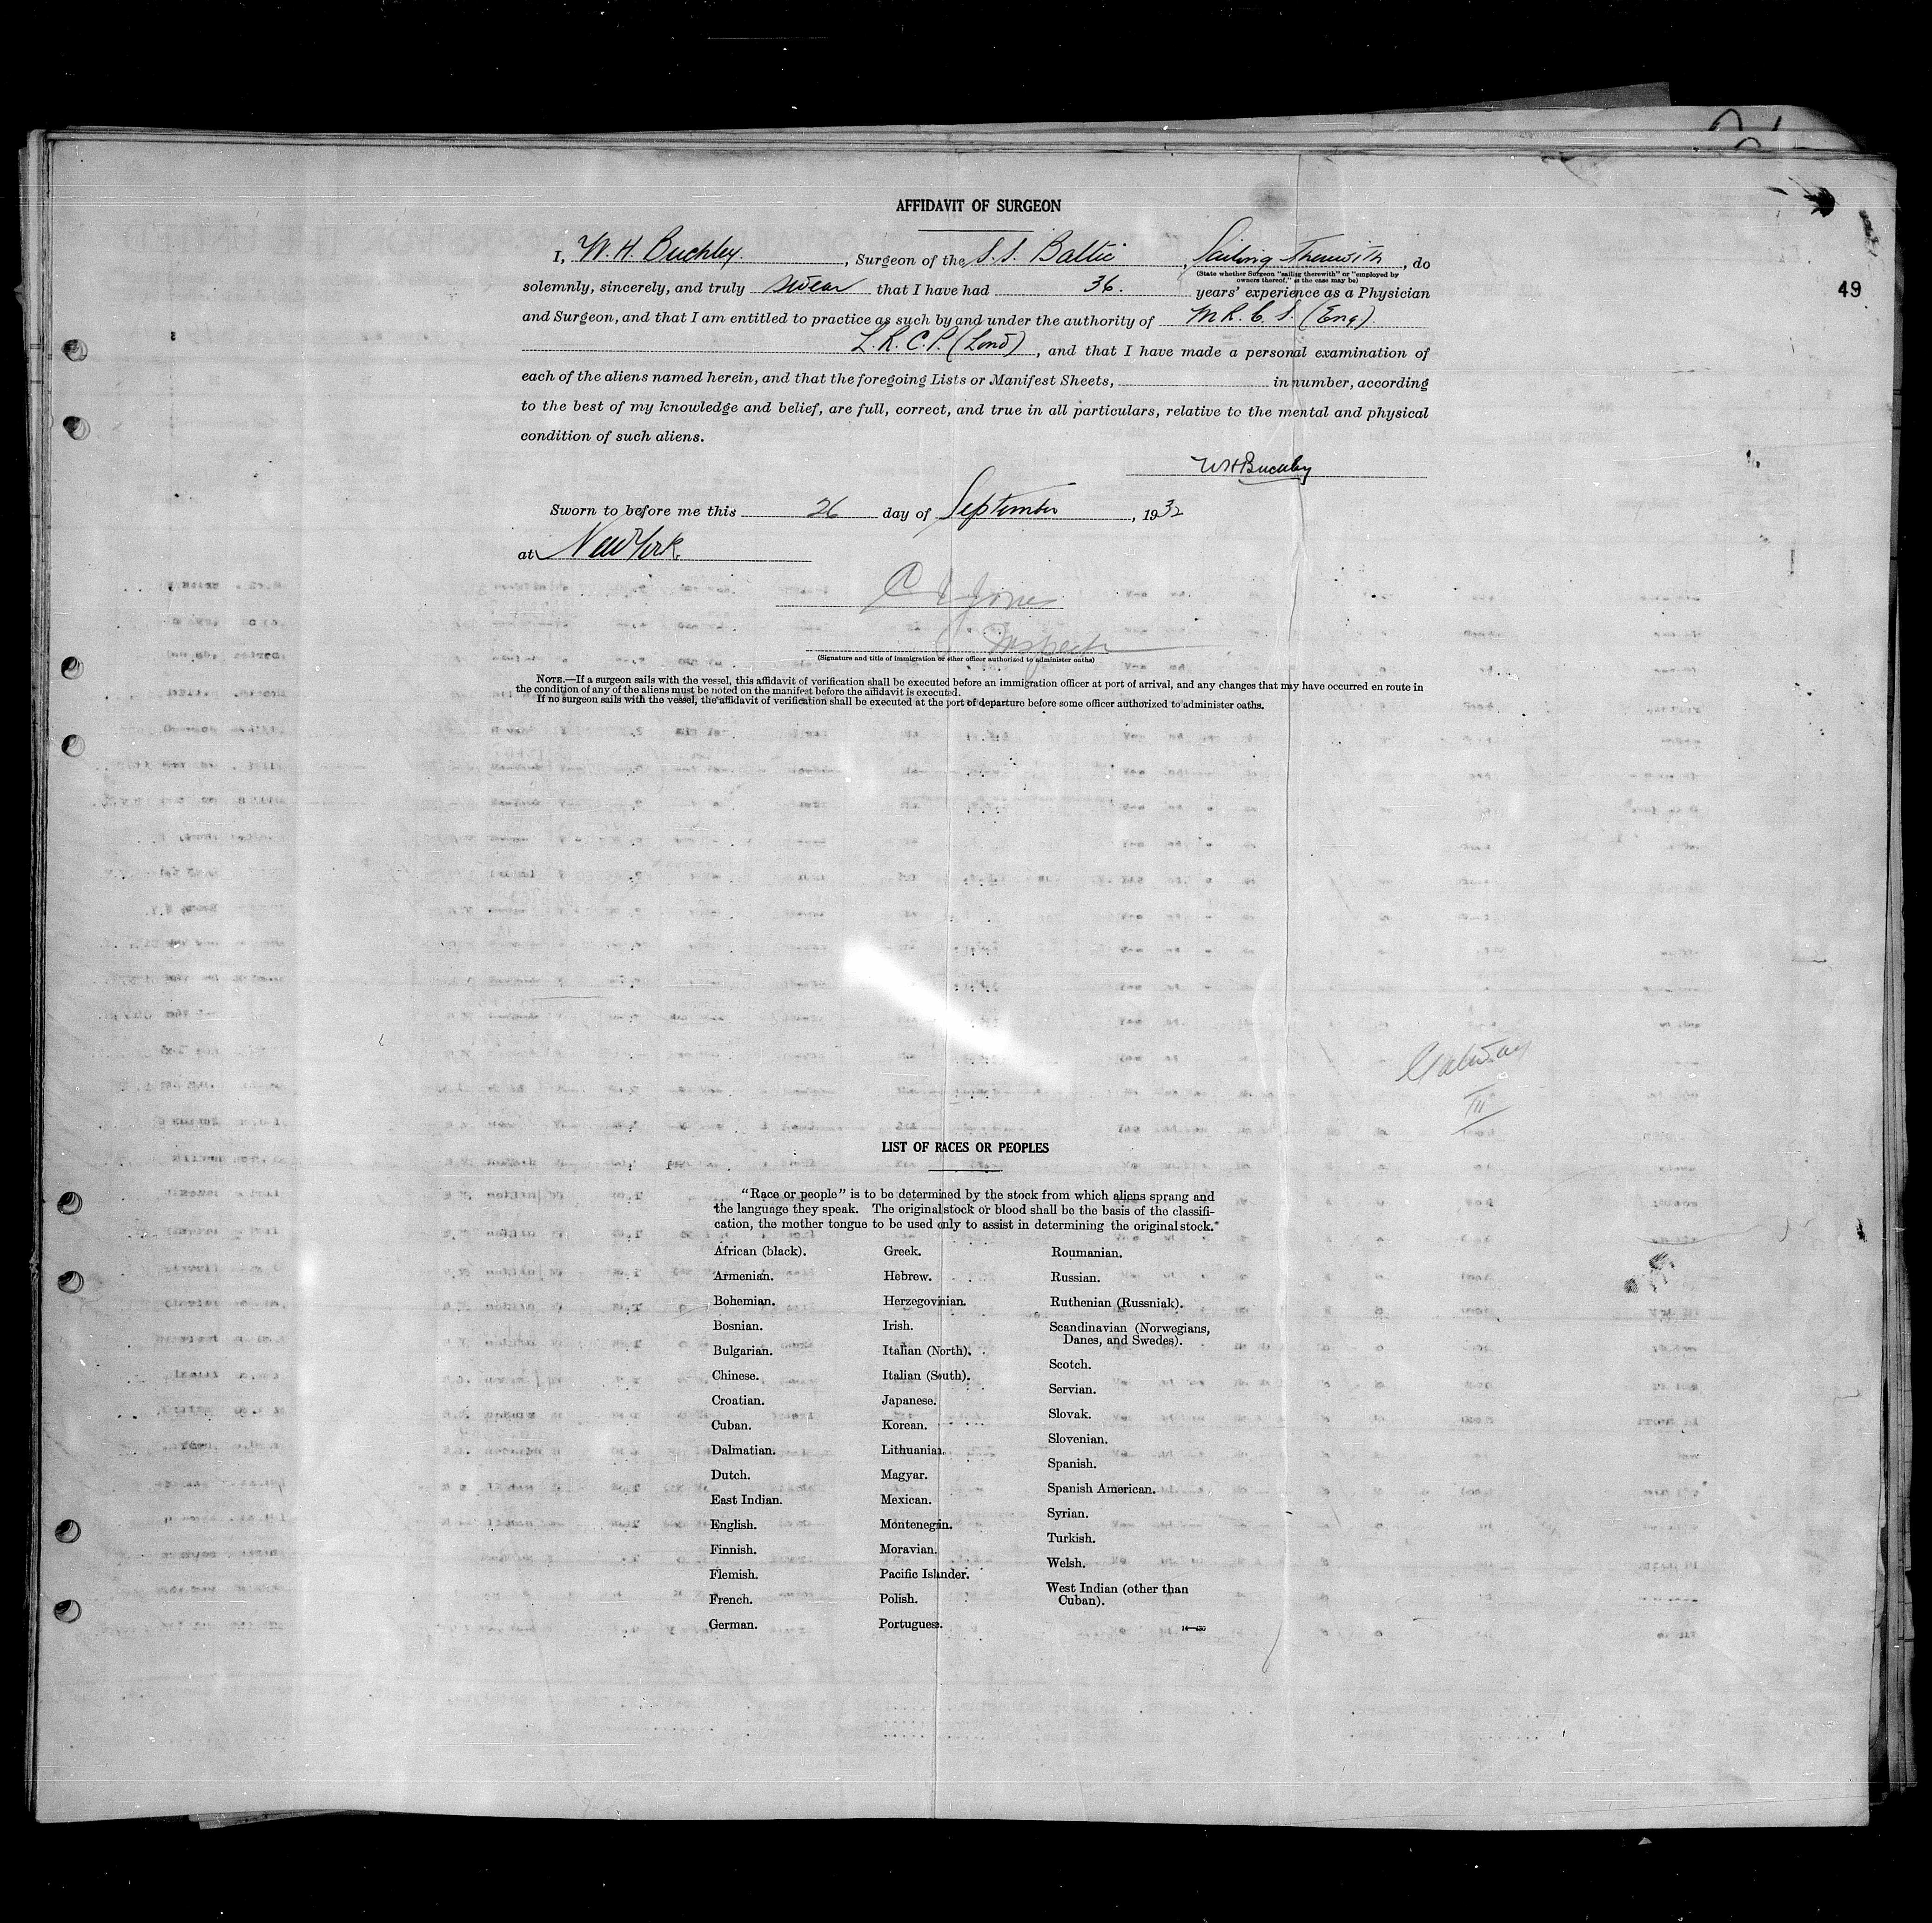 AFFIDAVIT OF SURGEON
I, W. H. Buckley, Surgeon of the S.S. Baltic, Sailing Therewith, do
(State whether Surgeon "sailing therewith" or "employed by
owners thereof," as the case may be)
49
solemnly, sincerely, and truly swear that I have had 36. years' experience as a Physician
and Surgeon, and that I am entitled to practice as such by and under the authority of M R. C. S. (Eng).
L. R. C. P. (Lond), and that I have made a personal examination of
each of the aliens named herein, and that the foregoing Lists or Manifest Sheets, in number, according
to the best of my knowledge and belief, are full, correct, and true in all particulars, relative to the mental and physical
condition of such aliens.
WHBuckley
Sworn to before me this 26 day of September, 1932
at New York
Jones
Inspector
(Signature and title of immigration or other officer authorized to administer oaths)
NOTE.—If a surgeon sails with the vessel, this affidavit of verification shall be executed before an immigration officer at port of arrival, and any changes that may have occurred en route in
the condition of any of the aliens must be noted on the manifest before the affidavit is executed.
If no surgeon sails with the vessel, the affidavit of verification shall be executed at the port of departure before some officer authorized to administer oaths.
Galway
III
LIST OF RACES OR PEOPLES
"Race or people" is to be determined by the stock from which aliens sprang and
the language they speak. The original stock or blood shall be the basis of the classifi-
cation, the mother tongue to be used only to assist in determining the original stock.
African (black).
Armenian.
Bohemian.
Bosnian.
Bulgarian.
Chinese.
Croatian.
Cuban.
Dalmatian.
Dutch.
East Indian.
English.
Finnish.
Flemish.
French.
German.
Greek.
Hebrew.
Herzegovinian.
Irish.
Italian (North).
Italian (South).
Japanese.
Korean.
Lithuanian.
Magyar.
Mexican.
Montenegrin.
Moravian.
Pacific Islander.
Polish.
Portuguese.
Roumanian.
Russian.
Ruthenian (Russniak).
Scandinavian (Norwegians,
Danes, and Swedes).
Scotch.
Servian.
Slovak.
Slovenian.
Spanish.
Spanish American.
Syrian.
Turkish.
Welsh.
West Indian (other than
Cuban).